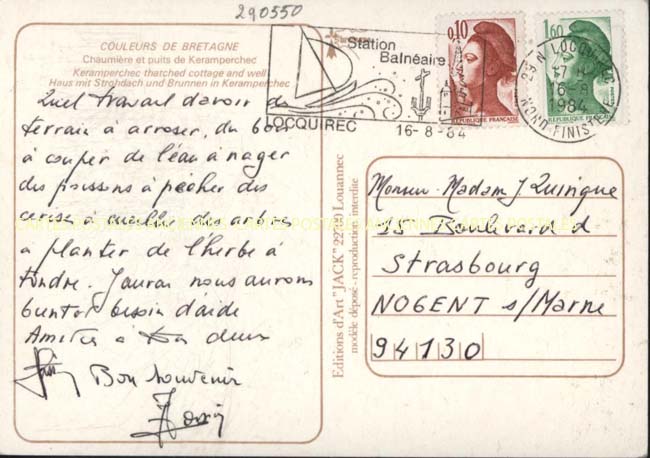 290550
COULEURS DE BRETAGNE
Chaumière et puits de Keramperchec
Keramperchec thatched cottage and well
Haus mit Strohdach und Brunnen in Keramperchec
Quel travail d'avoir du
terrain à arroser, du bois
à couper de l'eau à nager
des poissons à pêcher des
cerises à cueillir des arbres
a planter de l'herbe à
tondre. nous aurons
bientot besoin d'aide
Amitiés à deux
Bon souvenir
Station
Balnéaire
LOCQUIREC
16-8-84
0,10
REPUBLIQUE FRANÇAISE
1,60
REPUBLIQUE FRANÇAISE
29 N LOCQUIREC
17 H
16-8
1984
NORD-FINISTERE
Editions d'Art "JACK" 22720 Louannec
modèle déposé - reproduction interdite
Monsieur Madam J. Quinique
33 Boulevard d
Strasbourg
NOGENT s/Marne
94130
CARTES POSTALES ANCIENNES CARTES POSTALES ANCIENNES CARTES POSTALES